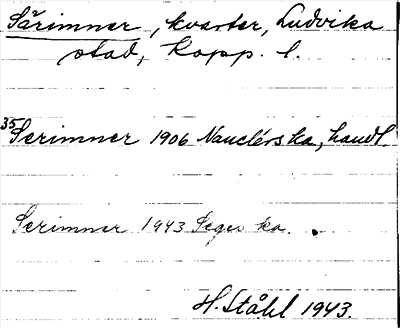 Särimner, kvarter, Ludvika
stad, Kopp. l.
35 Serimner 1906 Nauclérs ka, handl.
Serimner 1943 Segers ka.
H. Ståhl 1943.